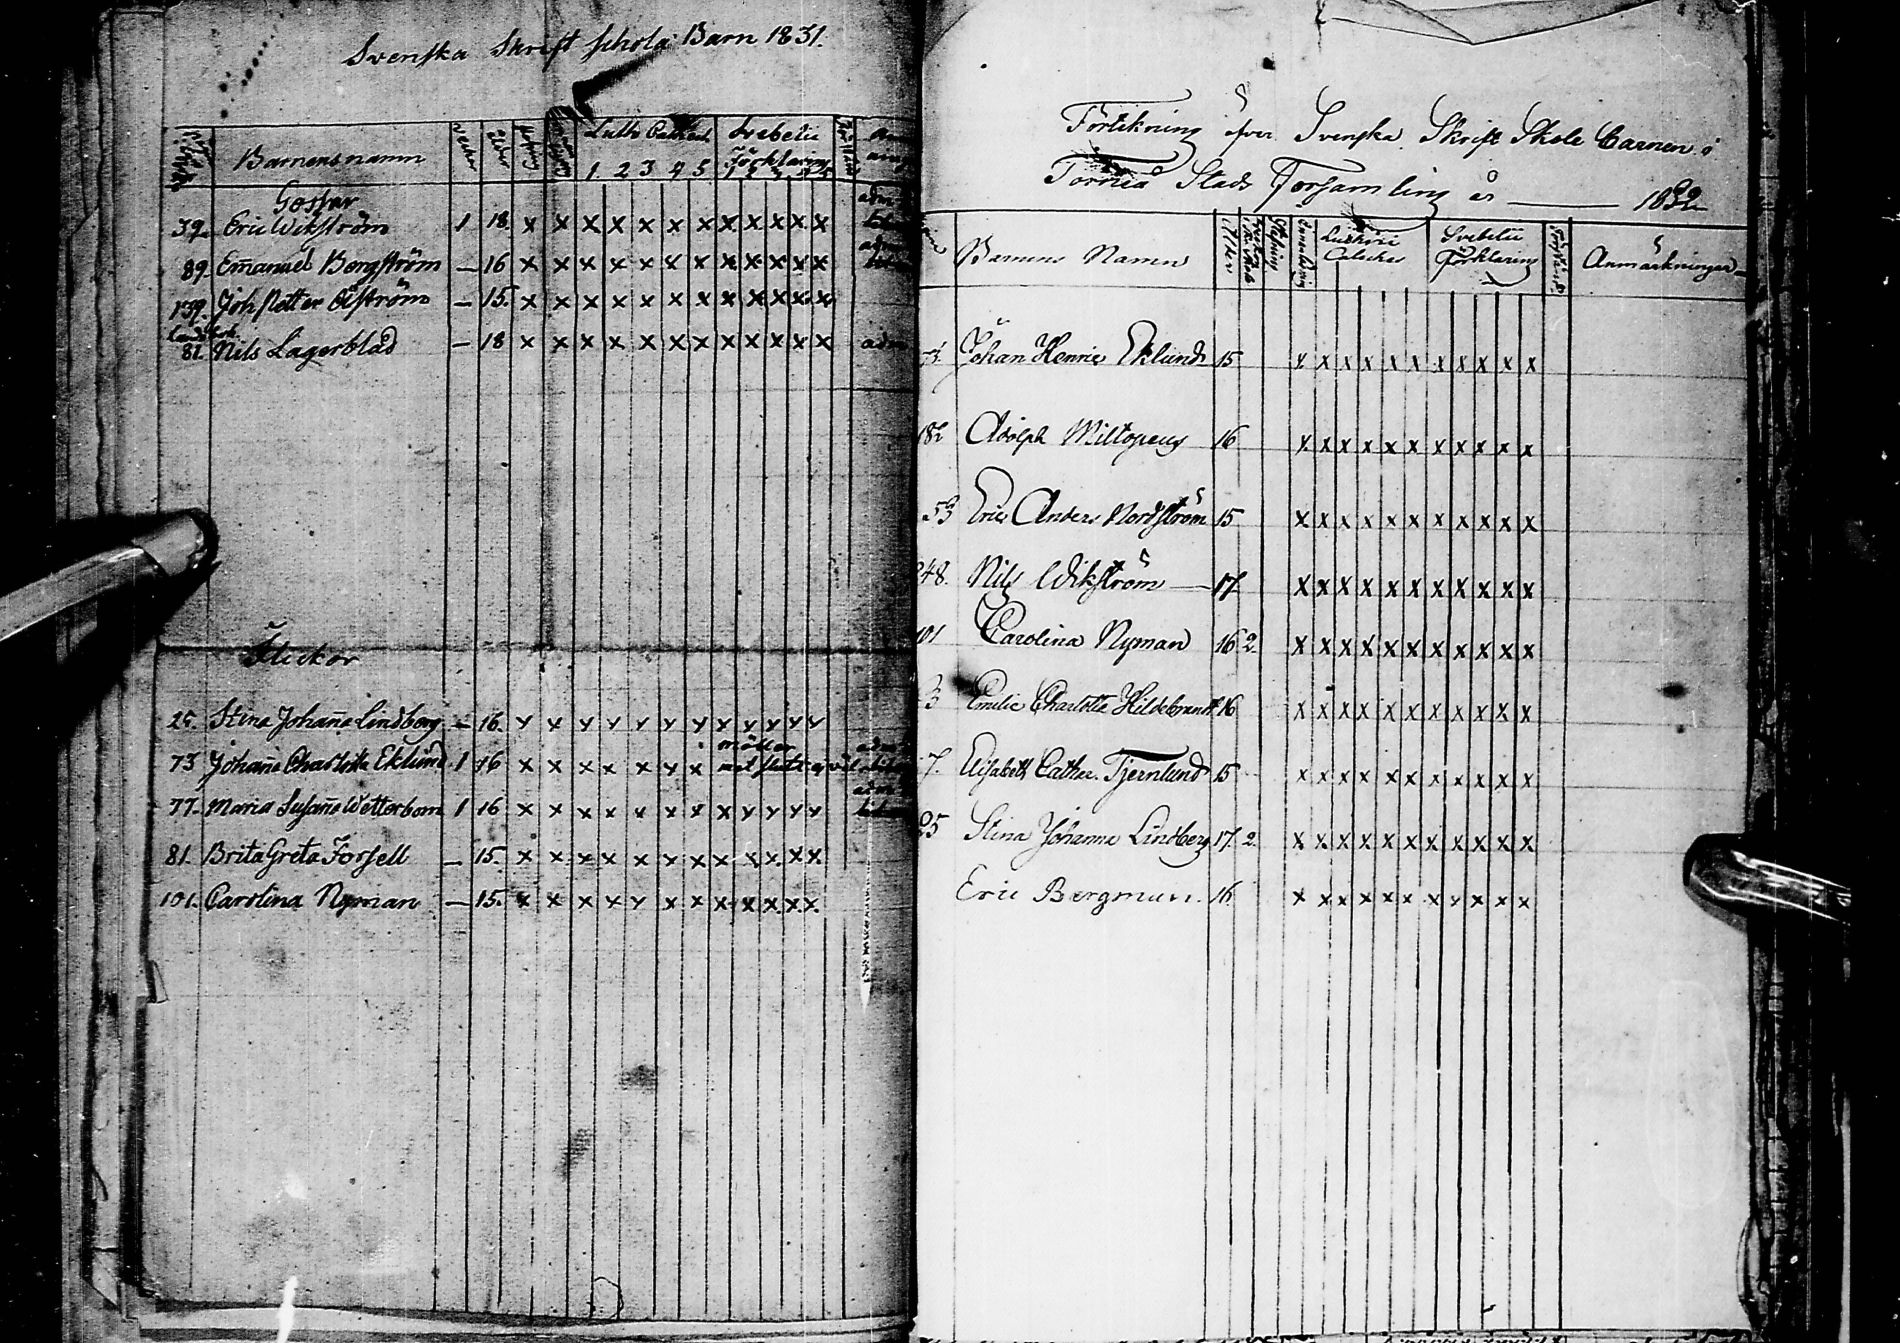 Svenska Skrift schola Barn 1831.
Barnens namn Ålder Luth Svebelii
Förklaring
1 2 3 4 5 1 2 3 4 5
Gossar
39. Eric Wikström 1 18. x x x x x x x x x x x x
89. Emanuel Bergström — 16 x x x x x x x x x x x x
Joh Petter — 15. x x x x x x x x x x x x
81. Nils Lagerblad — 18 x x x x x x x x x x x x
Flickor
25. Stina Johanna Lindberg — 16. x x x x x x x x x x x x
73 Johanna Charlotta Eklund 1 16 x x x x x x x
77. Maria Susanna Wetterborn 1 16 x x x x x x x x x x x x
81. Brita Greta Forsell — 15. x x x x x x x x x x x x
101. Carolina Nyman — 15. x x x x x x x x x x x x
Förtekning öfver Svenska Skrift Skole Barnen i
Torneå Stads Församling år — 1832
Barnens Namn Ålder Lutheri Svebelii Anmärkningar
Förklaring
Johan Henric Eklund 15 x x x x x x x x x x x
Adolph 16 x x x x x x x x x x x
53 Eric Anders Nordström 15 x x x x x x x x x x x
248. Nils Wikström — 17 x x x x x x x x x x x
101 Carolina Nyman 16 2. x x x x x x x x x x x
3 Emilie Charlotta Hildebrandt 16 x x x x x x x x x x x
7. Elisabeth Cathar. Tjernlund 15 x x x x x x x x x x x
25 Stina Johanna Lindberg 17. 2. x x x x x x x x x x x
Eric Bergman. 16 x x x x x x x x x x x